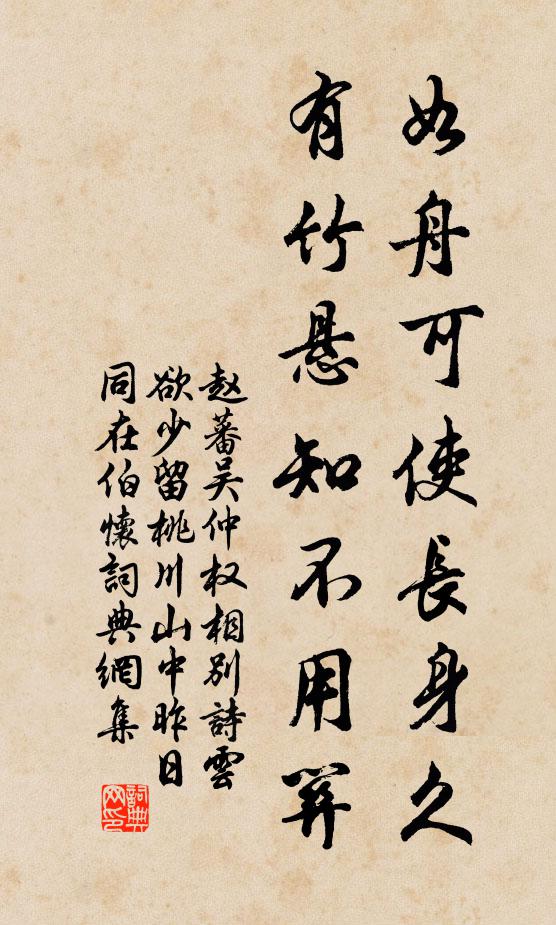 如舟可使長身久
有竹悬知不用笄
赵蕃吴仲权相别詩雲
欲少留桃川山中昨日
同在伯懷詞典網集
詞典
网印